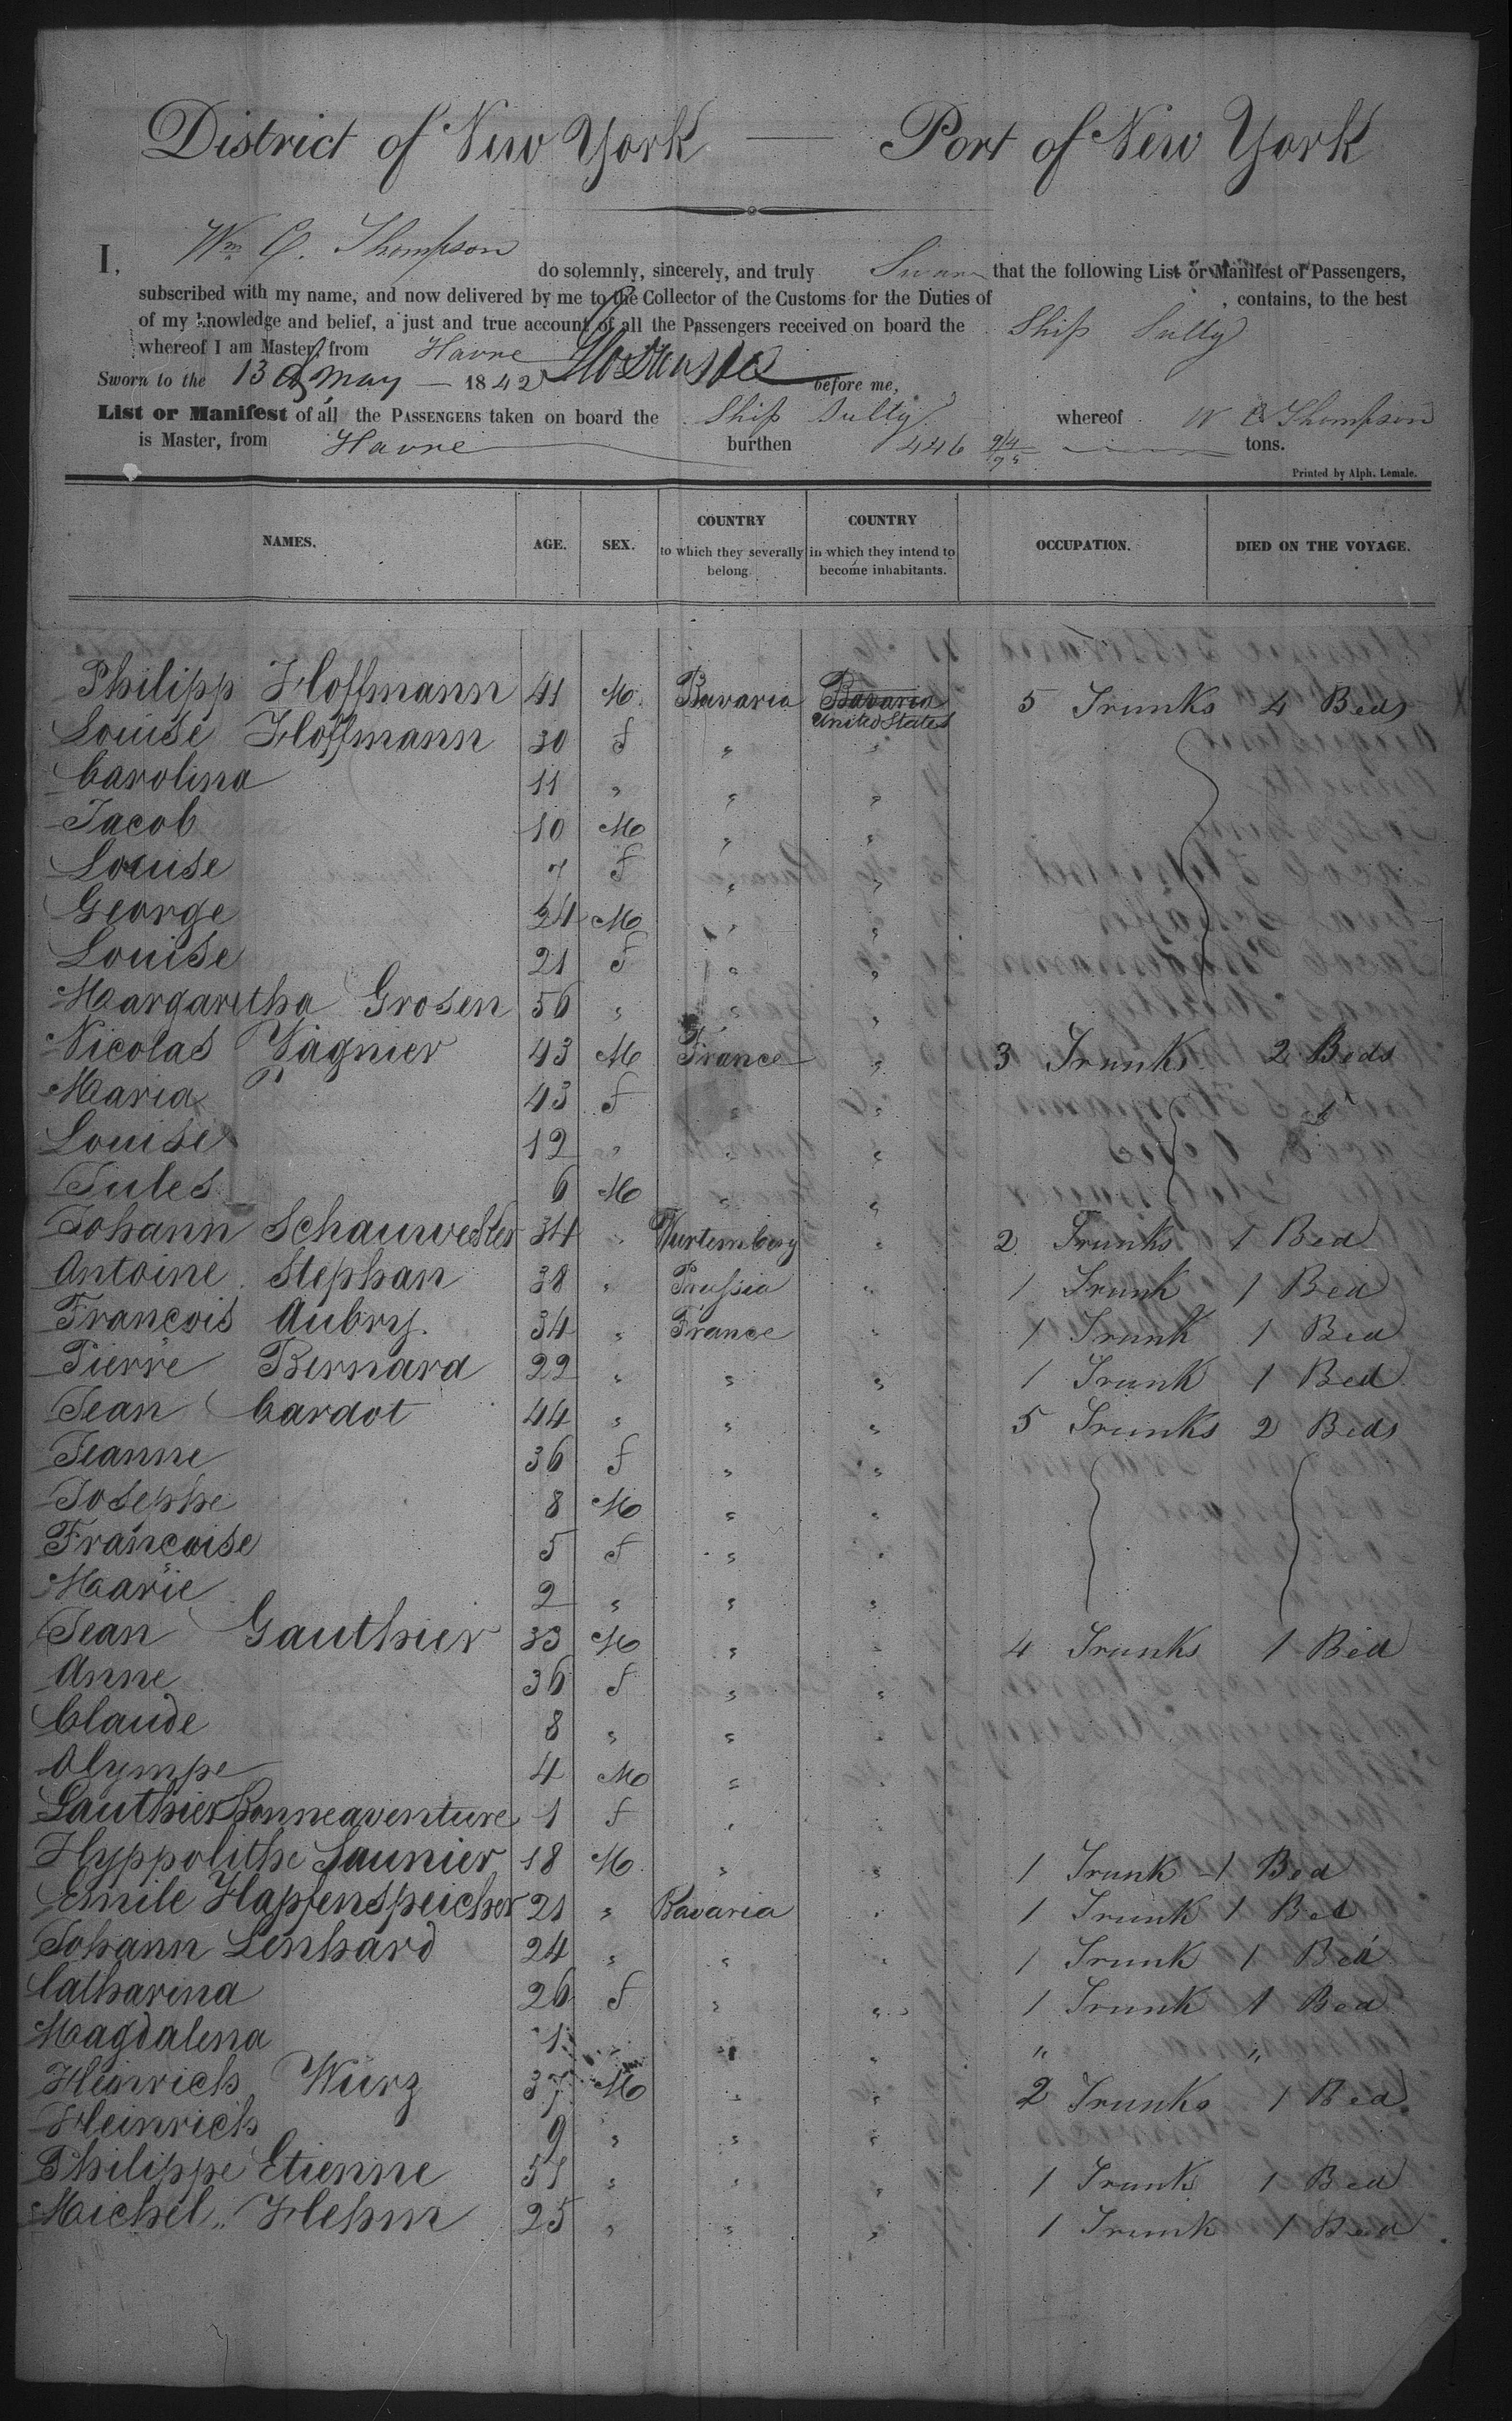 District of New York — Port of New York
I, Wm C. Thompson do solemnly, sincerely, and truly Swear that the following List or Manifest of Passengers,
subscribed with my name, and now delivered by me to the Collector of the Customs for the Duties of , contains, to the best
of my knowledge and belief, a just and true account of all the Passengers received on board the Ship Sully
whereof I am Master, from Havre
Sworn to the 13 of May 1842 before me,
List or Manifest of all the PASSENGERS taken on board the Ship Sully whereof W C Thompson
is Master, from Havre burthen 446 94/95 tons.
Printed by Alph. Lemale.
NAMES. AGE. SEX. COUNTRY to which they severally belong. COUNTRY in which they intend to become inhabitants. OCCUPATION. DIED ON THE VOYAGE.
Philipp Hoffmann 41 M. Bavaria Bavaria United States 5 Trunks 4 Beds
Louise Hoffmann 30 f " "
Carolina 11 " " "
Jacob 10 M " "
Louise 7 f " "
George 24 M " "
Louise 21 f " "
Margaretha Grosen 56 " " "
Nicolas Gagnier 43 M France " 3 Trunks 2 Beds
Maria 43 f " "
Louise 12 " " "
Jules 6 M " "
Johann Schauwester 34 " Wurtemberg " 2 Trunks 1 Bed
Antoine Stephan 38 " Prussia " 1 Trunk 1 Bed
Francois Aubry. 34 " France " 1 Trunk 1 Bed
Pierre Bernard 22 " " " 1 Trunk 1 Bed
Jean Cardot 44 " " " 5 Trunks 2 Beds
Jeanne 36 f " "
Josephe 8 M " "
Francoise 5 f " "
Marie 2 " " "
Jean Gauthier 33 M " " 4 Trunks 1 Bed
Anne 36 f " "
Claude 8 " " "
Olympe 4 M " "
Gauthier Bonneaventure 1 f " "
Hyppolithe Saunier 18 M. " " 1 Trunk 1 Bed
Emile Hapfenspeicher 21 " Bavaria " 1 Trunk 1 Bed
Johann Lenhard 24 " " " 1 Trunk 1 Bed
Catharina 26 f " " 1 Trunk 1 Bed
Magdalena 1 " " " " "
Heinrich Würz 37 M " " 2 Trunks 1 Bed
Heinrich 9 " " "
Philippe Etienne 51 " " " 1 Trunk 1 Bed
Michel Hehm 25 " " " 1 Trunk 1 Bed